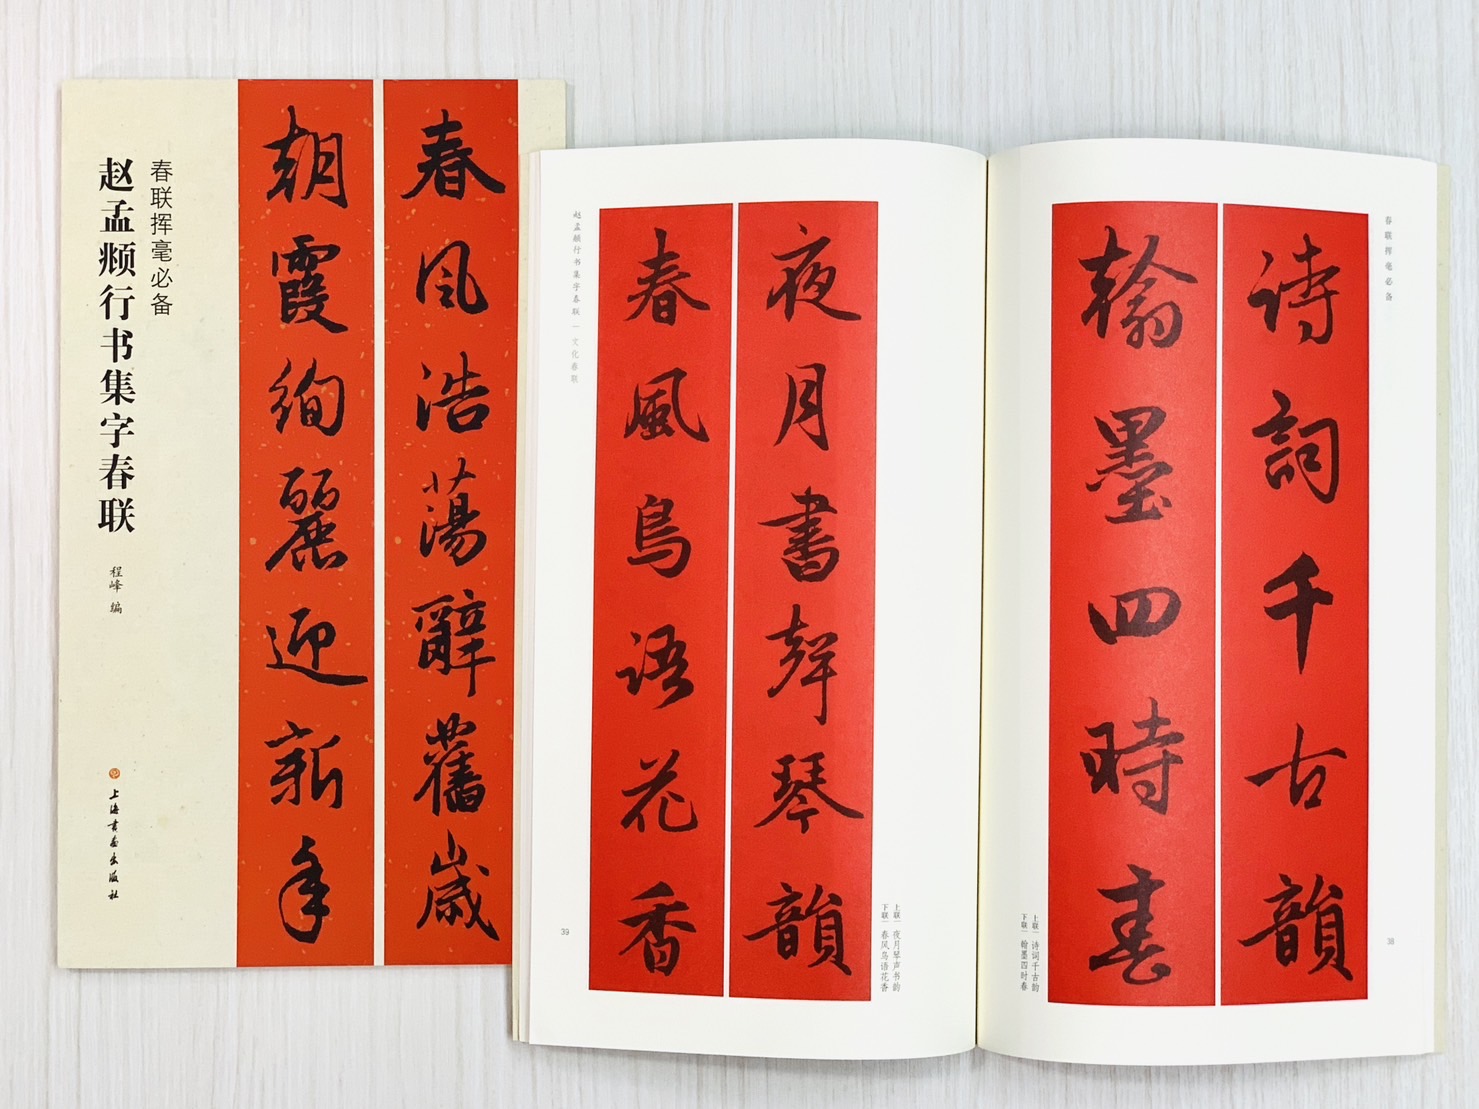 春風浩蕩辭舊歲
朝霞絢麗迎新年
春联挥毫必备
赵孟𫖯行书集字春联
程峰 编
上海书画出版社
春联挥毫必备
詩詞千古韻
翰墨四時春
上联｜诗词千古韵
下联｜翰墨四时春
38
夜月書聲琴韻
春風鳥語花香
上联｜夜月琴声书韵
下联｜春风鸟语花香
赵孟𫖯行书集字春联｜文化春联
39